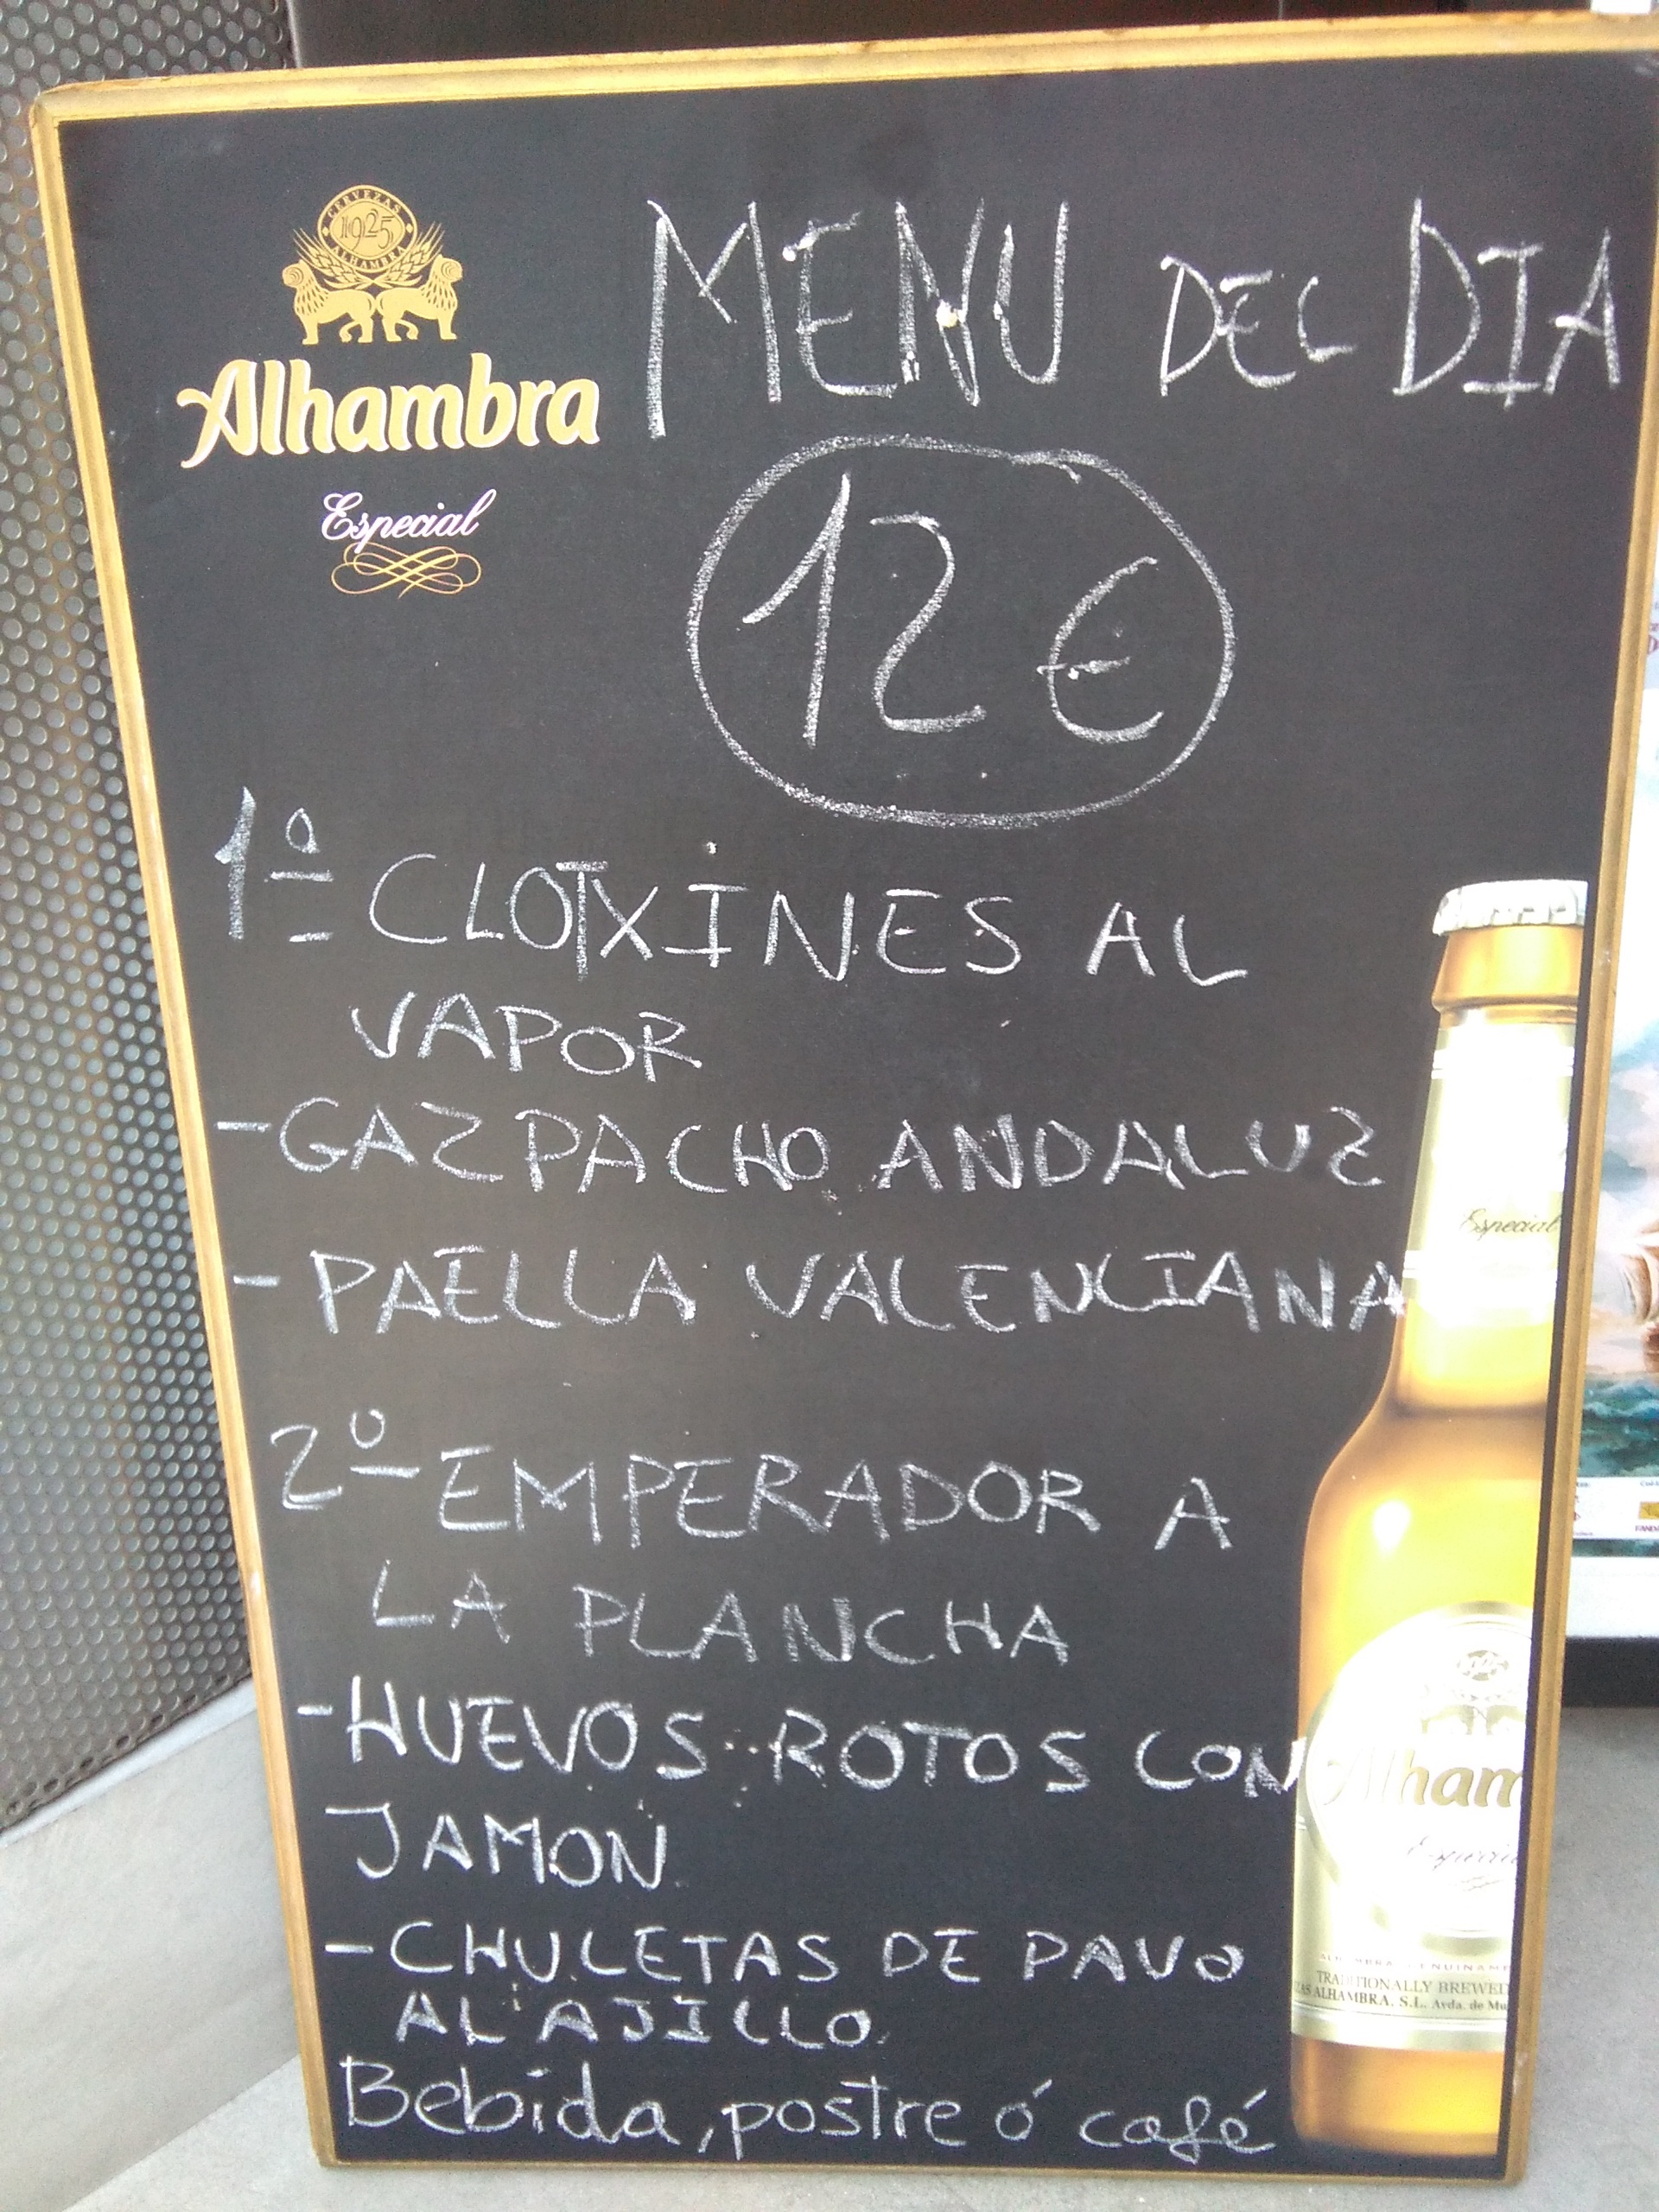 CERVEZAS
1925
ALHAMBRA
Alhambra
Especial
MENU DEL DIA
12 €
1º CLOTXINES AL
VAPOR
-GAZPACHO ANDALUZ
- PAELLA VALENCIANA
2º EMPERADOR A
LA PLANCHA
-HUEVOS ROTOS CON
JAMON
- CHULETAS DE PAVO
AL AJILLO
Bebida, postre ó café
Especial
Alham
Especia
TRADITIONALLY BREWED
ALHAMBRA, S.L. Avda. de Mu